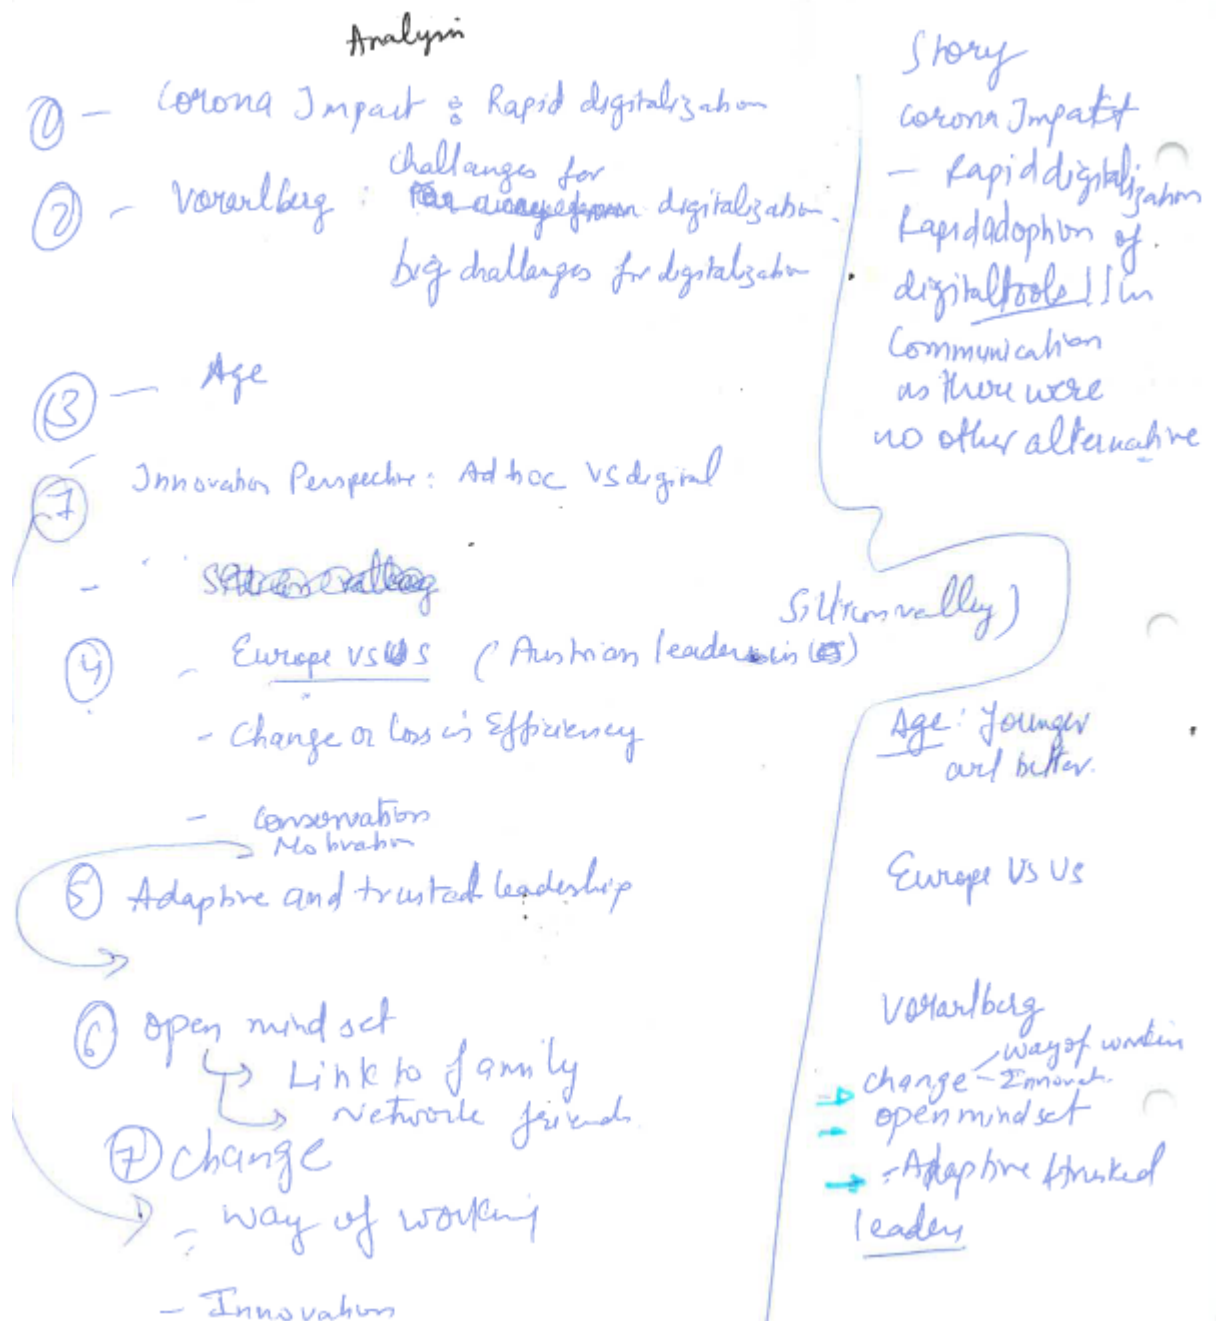 Analysis
① - Corona Impact : Rapid digitalization
② - Vorarlberg : challanges for
digitalization.
big challanges for digitalization
③ - Age
⑦ Innovation Perspective : Ad hoc vs digital
-
④ - Europe vs US (Austrian leaders in Silicon valley)
- Change or loss in Efficiency
- Conservation
Motivation
⑤ Adaptive and trusted leadership
⑥ open mind set
Link to family
Network friends
⑦ change
- way of working
- Innovation
Story
Corona Impact
- Rapid digitalization
Rapid adoption of
digital tools !! in
Communication
as there were
no other alternative
Age : Younger
are better.
Europe Vs US
Vorarlberg
change - way of workin
- Innovat.
open mind set
- Adaptive & trusted
leaders